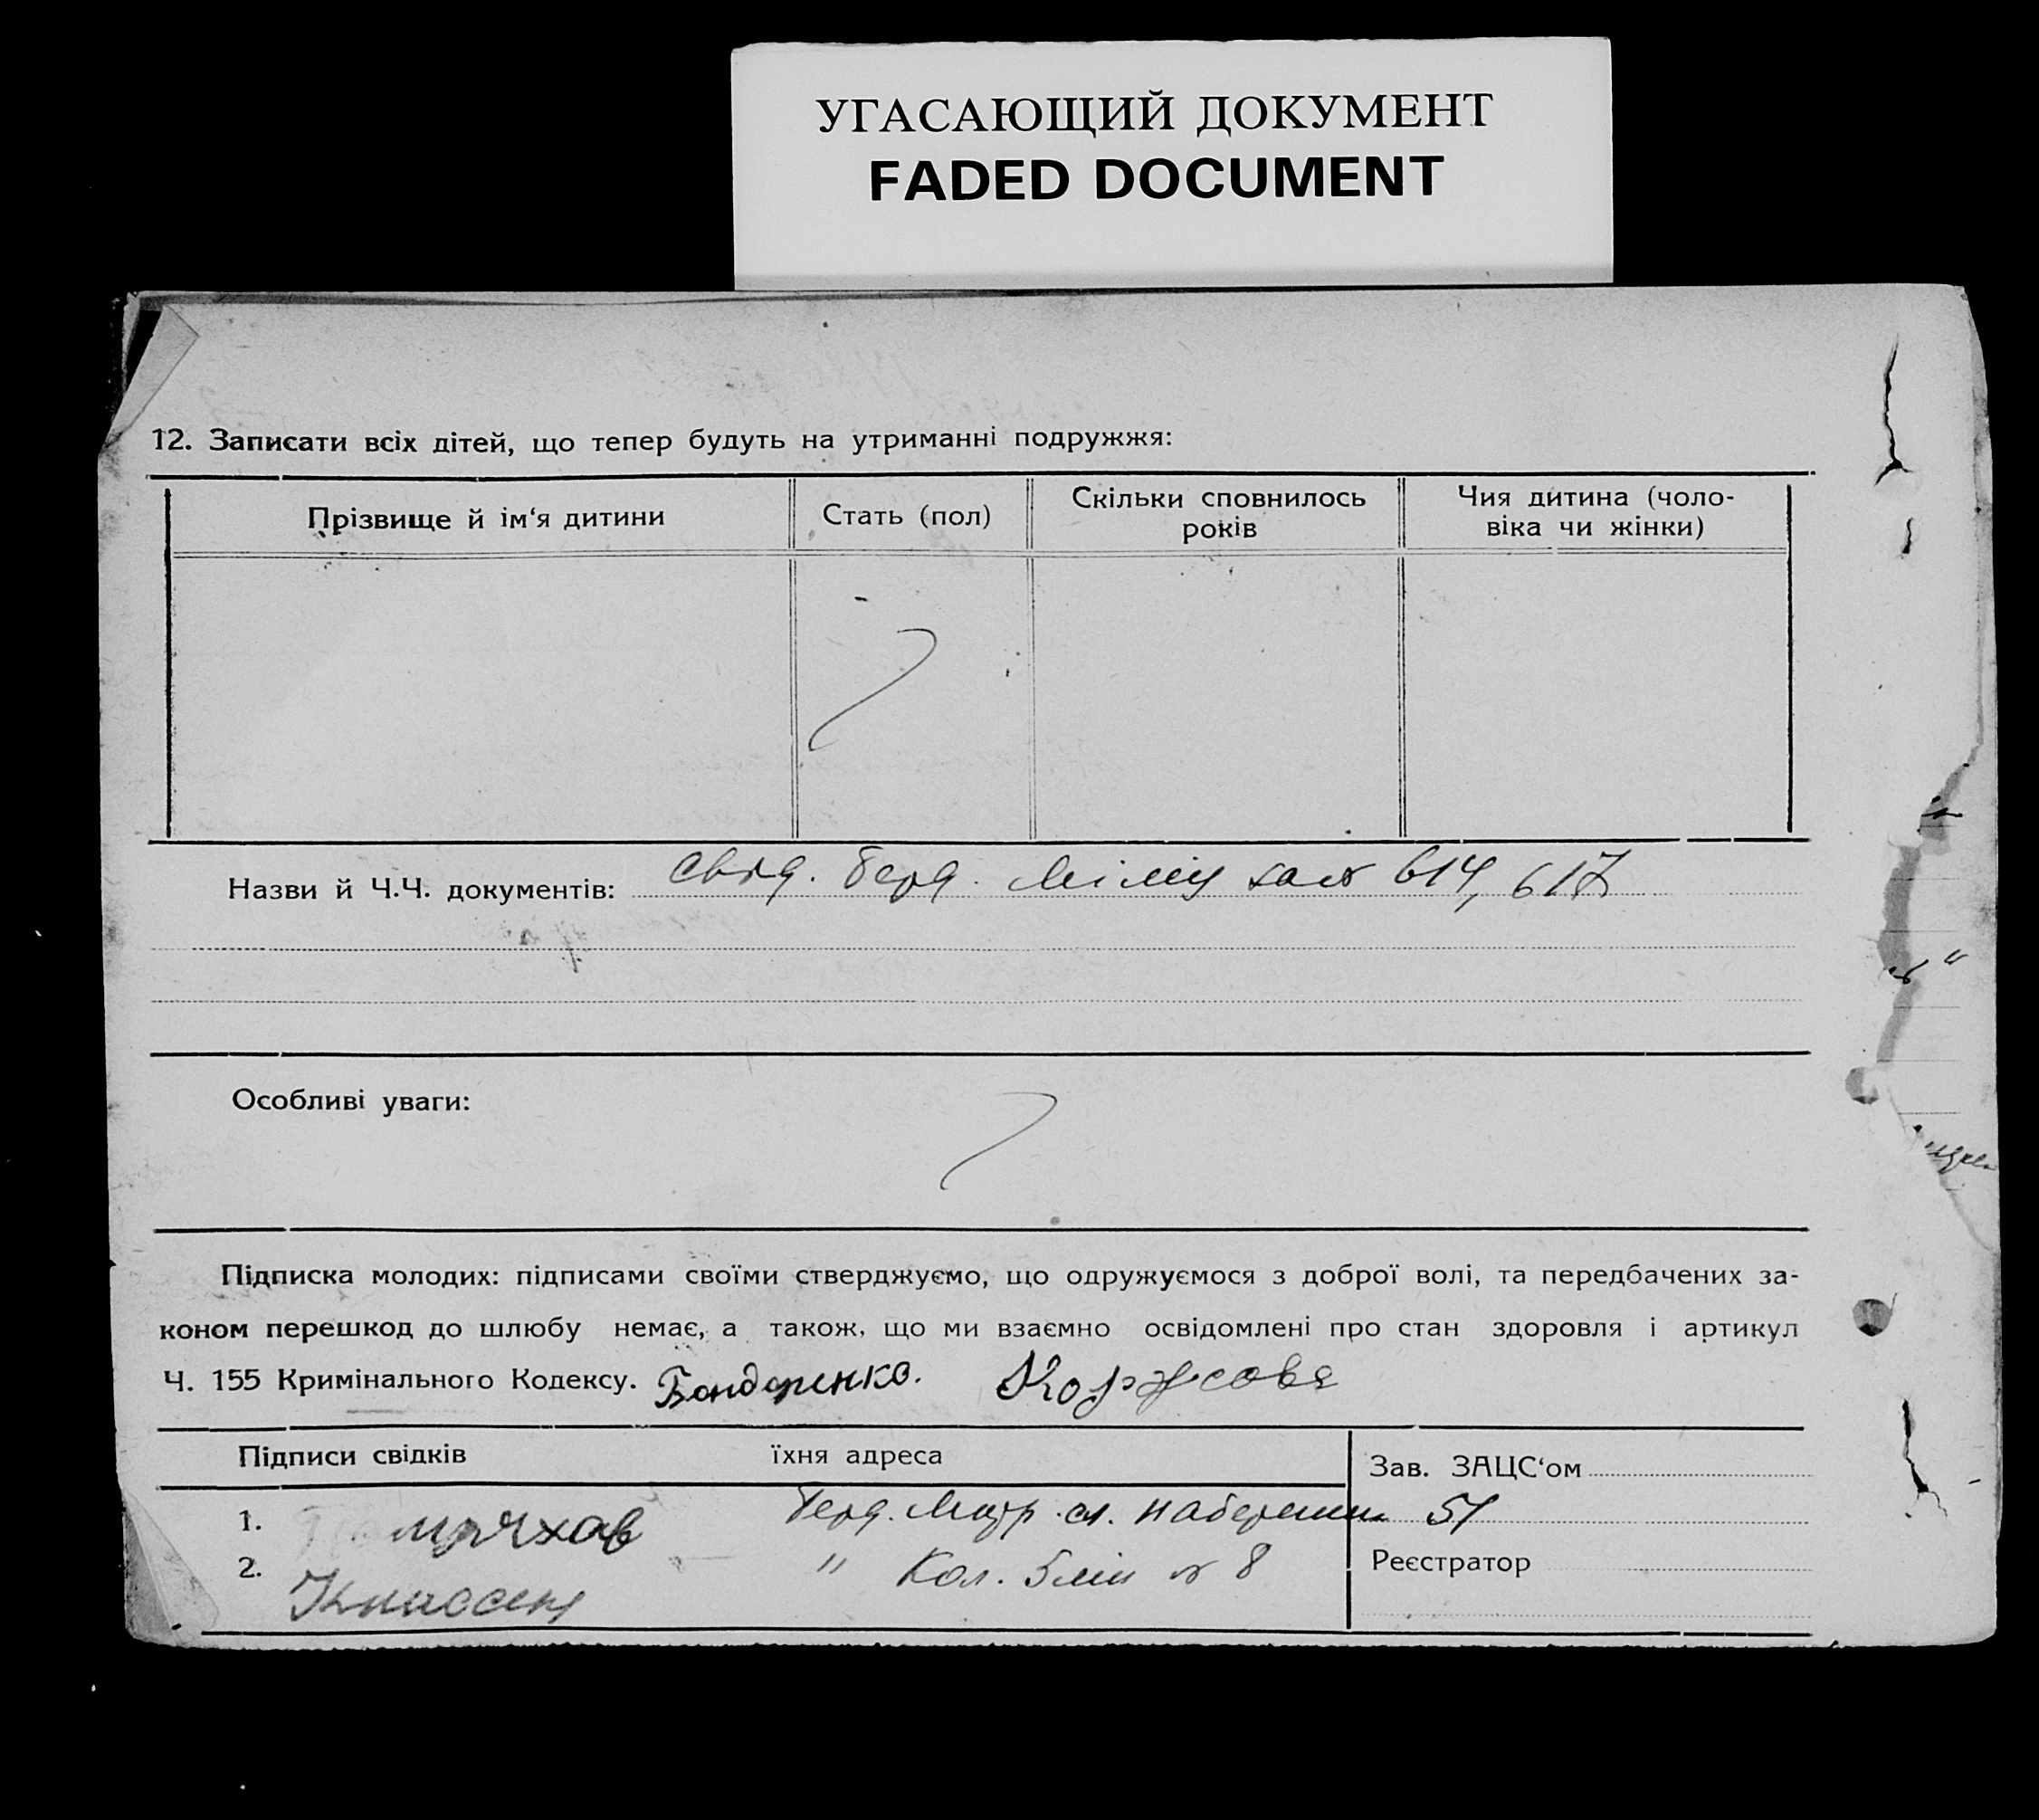 УГАСАЮЩИЙ ДОКУМЕНТ
FADED DOCUMENT
12. Записати всіх дітей, що тепер будуть на утриманні подружжя:
Прізвище й ім‘я дитини
Стать (пол)
Скільки сповнилось
років
Чия дитина (чоло-
віка чи жінки)
Назви й Ч.Ч. документів: Свід. Берд. 614, 617
Особливі уваги:
Підписка молодих: підписами своїми стверджуємо, що одружуємося з доброї волі, та передбачених за-
коном перешкод до шлюбу немає, а також, що ми взаємно освідомлені про стан здоровля і артикул
Ч. 155 Кримінального Кодексу. Бондаренко. Коржова
Підписи свідків
їхня адреса
Зав. ЗАЦС‘ом
1. Берд. 51
2. " Кол. 8
Реєстратор